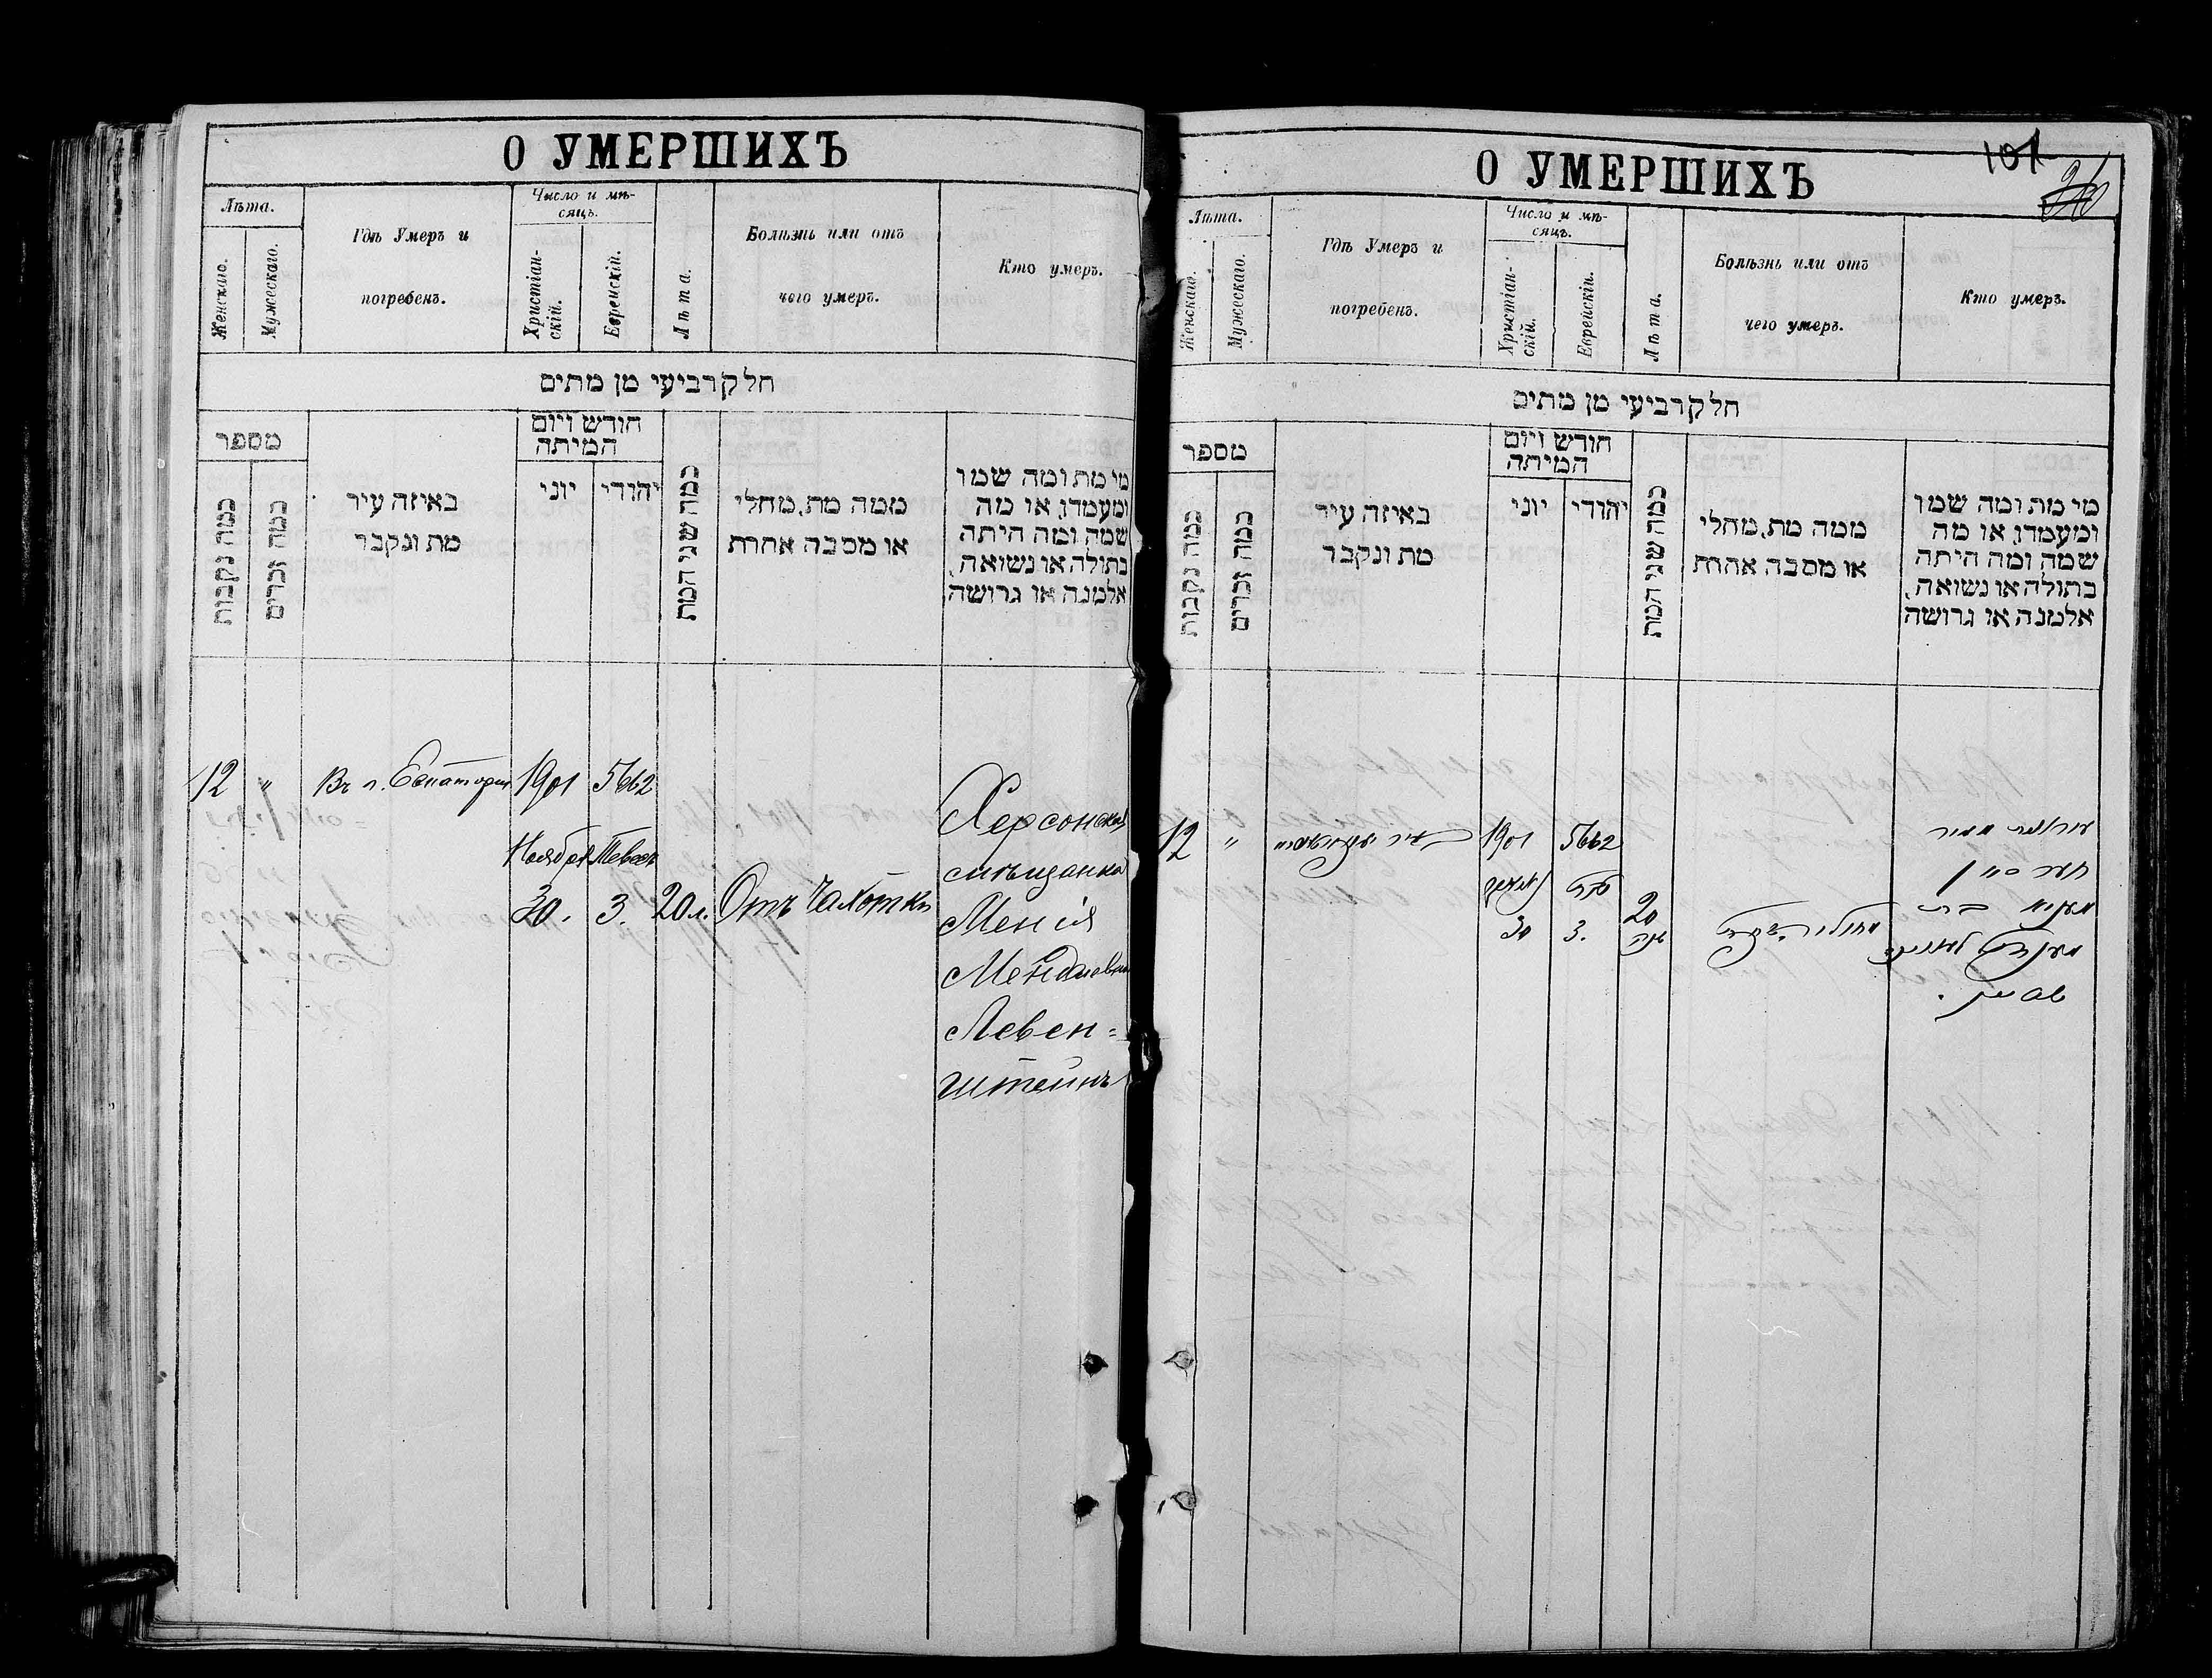 О УМЕРШИХЪ
Лѣта.
Женскаго.
Мужескаго.
Гдѣ Умеръ и
погребенъ.
Число и мѣ-
сяцъ.
Христіан-
скій.
Еврейскій.
Лѣта.
Болѣзнь или отъ
чего умеръ.
Кто умеръ.
חלק רביעי מן מתים
מספר
כמה נקבות
כמה זכרים
באיזה עיר
מת ונקבר
חודש ויום
המיתה
יוני
יהודי
כמה שני המת
ממה מת, מחלי
או מסבה אחרת
מי מת ומה שמו
ומעמדו, או מה
שמה ומה היתה
בתולה או נשואה,
אלמנה או גרושה
12 " Въ г. Евпаторіи 1901 5662
Ноября Тевесъ
30. 3. 20 л. Отъ Чахотки
Херсонская
мѣщанка
Менія
Менделевна
Левен=
штейнъ
101
О УМЕРШИХЪ
Лѣта.
Женскаго.
Мужескаго.
Гдѣ Умеръ и
погребенъ.
Число и мѣ-
сяцъ.
Христіан-
скій.
Еврейскій.
Лѣта.
Болѣзнь или отъ
чего умеръ.
Кто умеръ.
חלק רביעי מן מתים
מספר
כמה נקבות
כמה זכרים
באיזה עיר
מת ונקבר
חודש ויום
המיתה
יוני
יהודי
כמה שני המת
ממה מת, מחלי
או מסבה אחרת
מי מת ומה שמו
ומעמדו, או מה
שמה ומה היתה
בתולה או נשואה,
אלמנה או גרושה
12 " 1901 5662
טבת
30 3. 20